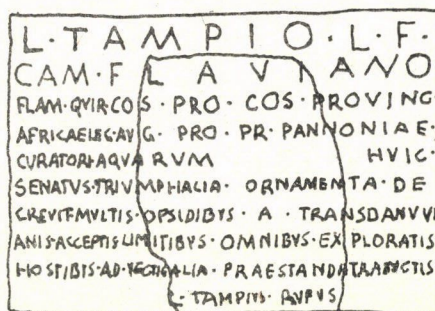 L · TAMPIO · L · F ·
CAM · FLAVIANO
FLAM · QVIR · COS · PRO · COS · PROVINC
AFRICAE LEG · AVG · PRO · PR · PANNONIAE ·
CVRATORI AQVARVM HVIC ·
SENATVS · TRIVMPHALIA · ORNAMENTA · DE
CREVIT MVLTIS · OPSIDIBVS · A · TRANSDANVVI
ANIS · ACCEPTIS LIMITIBVS · OMNIBVS · EXPLORATIS
HOSTIBVS · AD · VECTIGALIA · PRAESTANDA TRADVCTIS
L · TAMPIVS · RVFVS